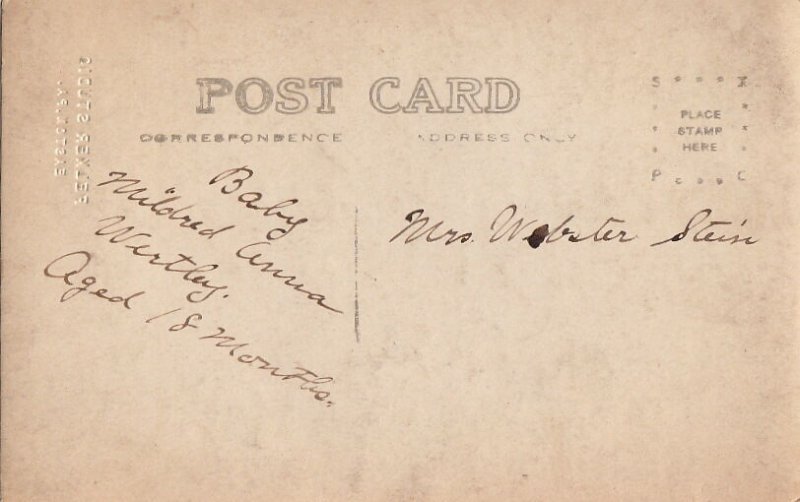 POST CARD
CORRESPONDENCE
ADDRESS ONLY
PLACE
STAMP
HERE
Baby
Mildred Anna
Wertley.
Aged 18 Months.
Mrs. Webster Stein